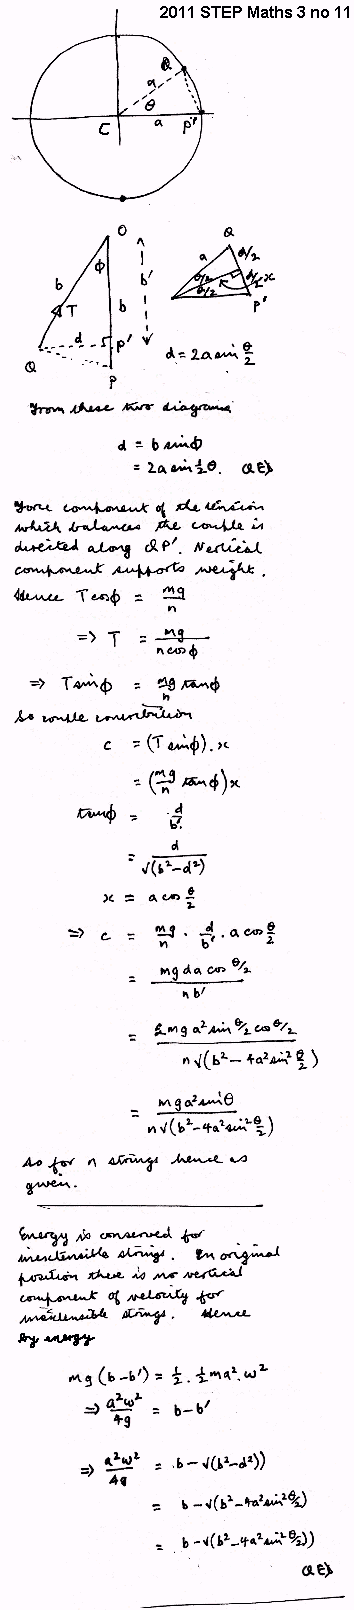 2011 STEP Maths 3 no 11
Q
a
θ
C
a
P'
O
φ
b
b'
T
b
d
P'
Q
P
Q
a
d/2
θ/2
θ/2
d/2
x
P'
d = 2a sin θ/2
From these two diagrams
d = b sinφ
= 2a sin ½θ. QED
Force component of the tension
which balances the couple is
directed along QP'. Vertical
component supports weight.
Hence T cosφ = mg/n
=> T = mg/(n cosφ)
=> T sinφ = mg/n tanφ
So couple contribution
c = (T sinφ).x
= (mg/n tanφ)x
tanφ = d/b'
= d/√(b²-d²)
x = a cos θ/2
=> c = mg/n . d/b' . a cos θ/2
= mg d a cos θ/2 / nb'
= 2mga² sin θ/2 cos θ/2 / n√(b²-4a² sin² θ/2)
= mga² sinθ / n√(b²-4a² sin² θ/2)
So for n strings hence as
given.
Energy is conserved for
inextensible strings. In original
position there is no vertical
component of velocity for
inextensible strings. Hence
by energy
mg(b-b') = ½.½ma².ω²
=> a²ω²/4g = b-b'
=> a²ω²/4g = b-√(b²-d²))
= b-√(b²-4a² sin² θ/2)
= b-√(b²-4a² sin² θ/2))
QED